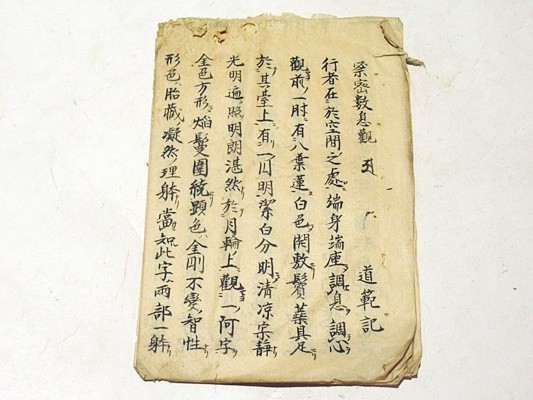 密教数息観 道範記
行者在於空間之處端身端座調息調心
觀前一肘有八葉蓮白色開敷鬚蘂具足
於其臺上有一月明潔白分明清凉寂静
光明遍照明朗湛然於月輪上觀一阿字
金色方形焔鬘圍繞顕色金剛不變智性
形色胎蔵凝然理躰當知此字兩部一躰